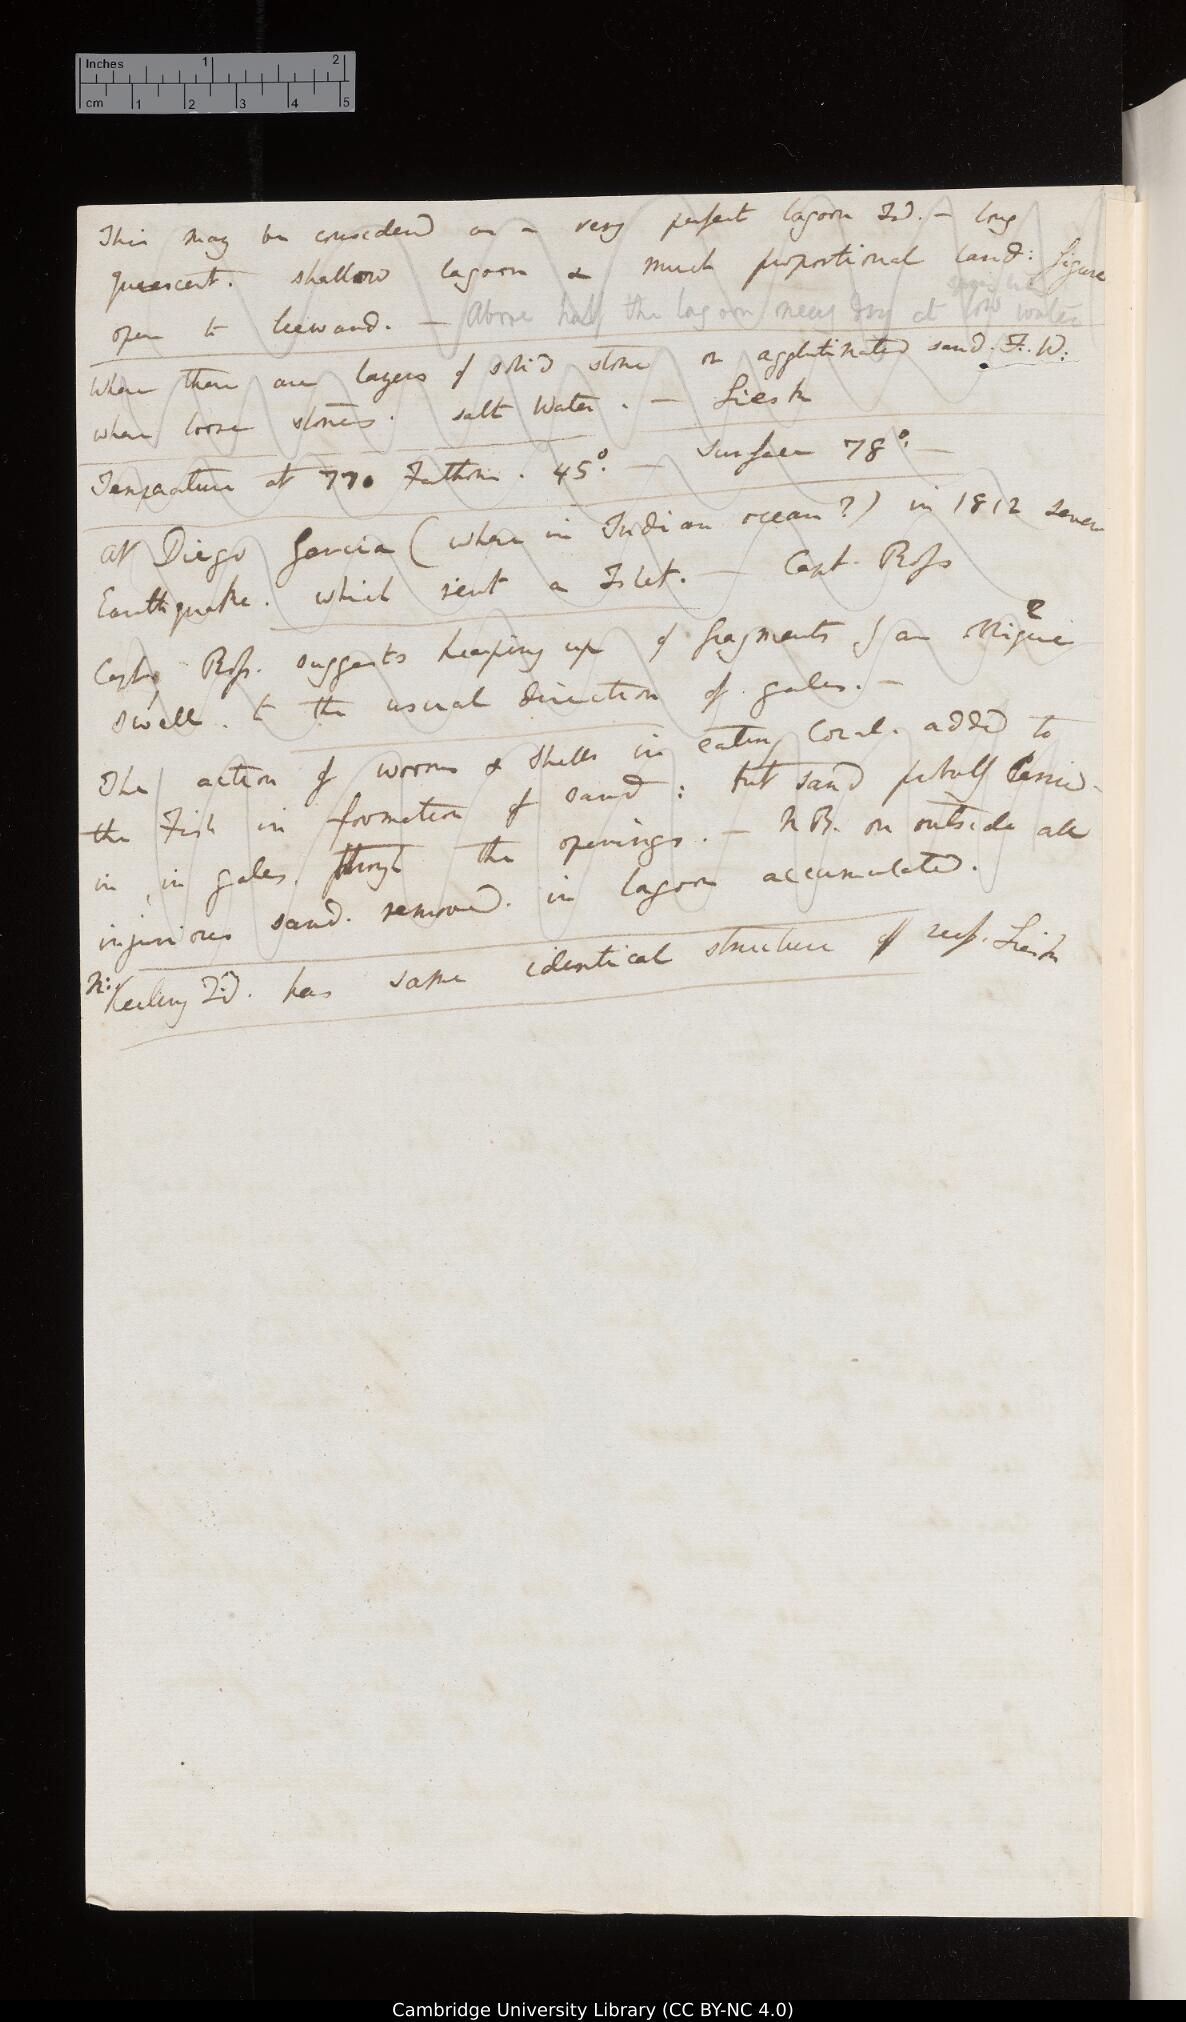 Inches 1 2
cm 1 2 3 4 5
This may be considered as a very perfect lagoon Isd. — long
quiescent. shallow lagoon & much proportional land: figure
spring tide
open to leeward. — Above half the lagoon nearly dry at low water
Where there are layers of solid stone or agglutinated sand. F. W:
where loose stones. salt Water. — Liesk
Temperature at 770 Fathom. 45°. — Surface 78°. —
At Diego Garcia (where in Indian ocean?) in 1812 severe
Earthquake. which rent a Islet. — Capt. Ross
Capt. Ross. suggests heaping up of fragments of an
swell. to the usual direction of gales. —
The action of worms & shells in eating Coral. added to
the Fish in formation of sand: but sand probably carried
in, in gales, through the openings. — NB. on outside all
injurious sand. removed. in lagoon accumulated.
N: Keeling Isd. has same identical structure of reef. Liesk
Cambridge University Library (CC BY-NC 4.0)